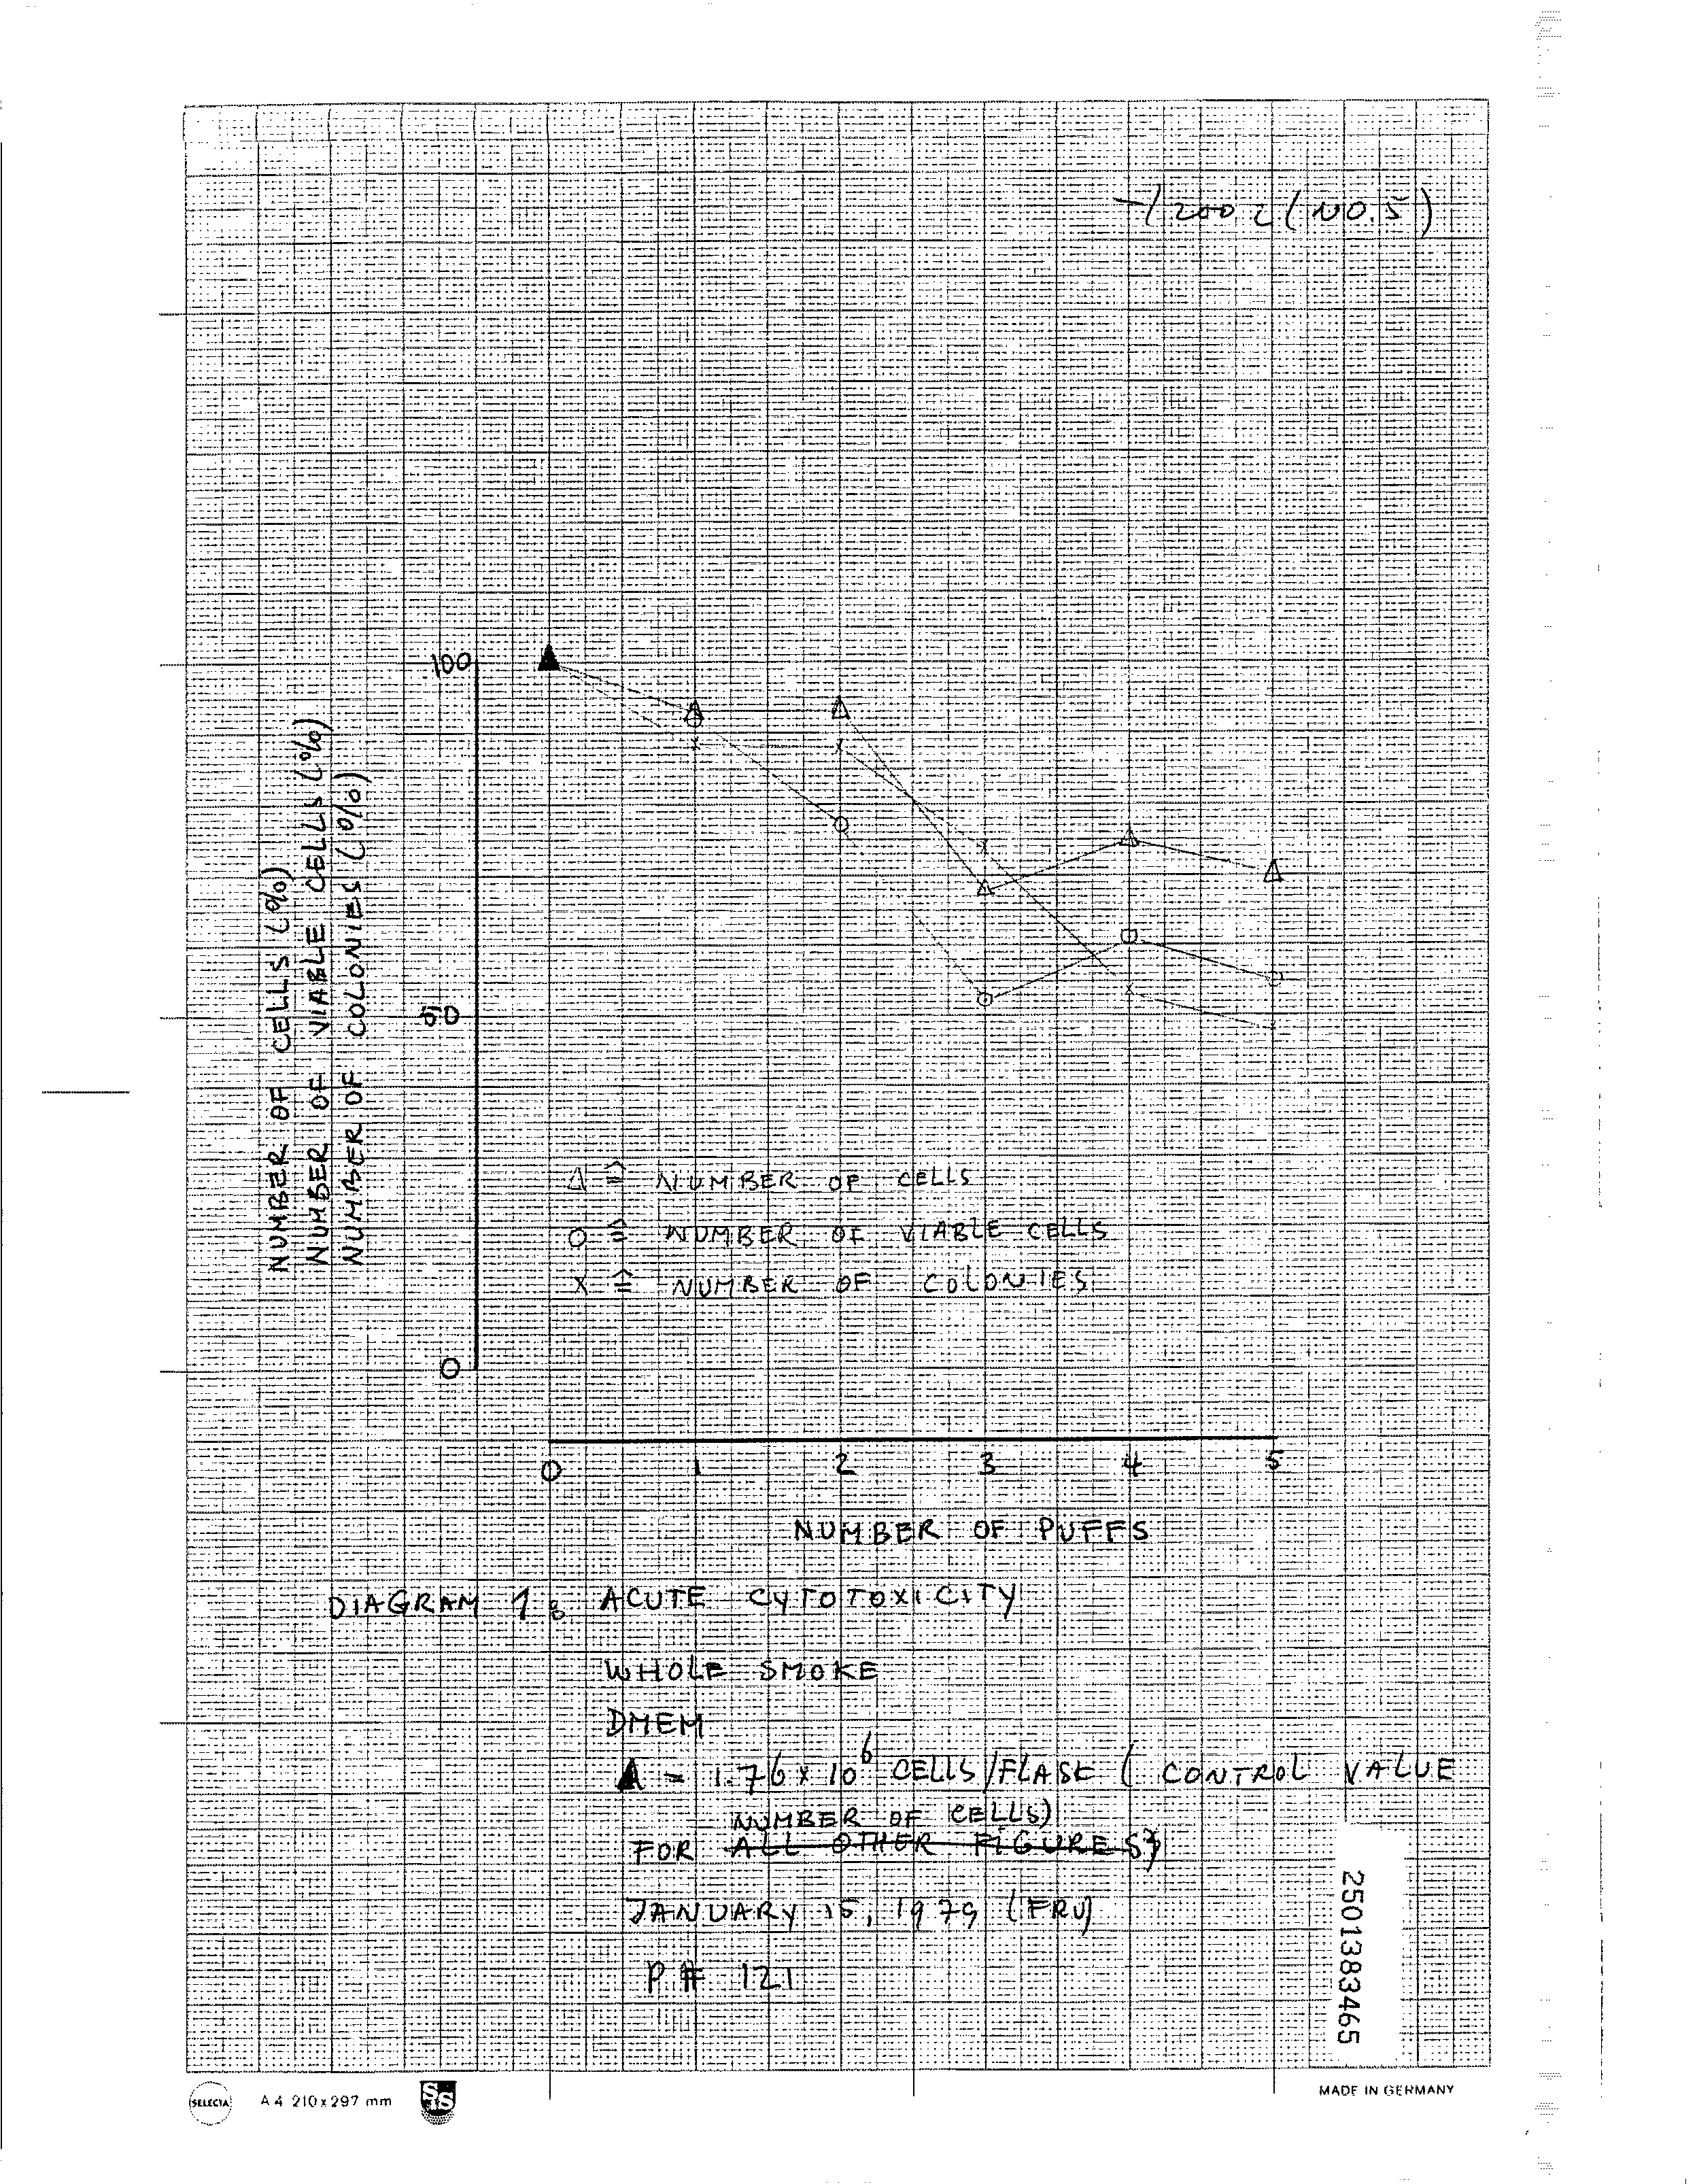 -/2002 (NO.5)
100
50
0
NUMBER OF CELLS (%)
NUMBER OF VIABLE CELLS (%)
NUMBER OF COLONIES (%)
Δ ≙ NUMBER OF CELLS
O ≙ NUMBER OF VIABLE CELLS
X ≙ NUMBER OF COLONIES
0 1 2 3 4 5
NUMBER OF PUFFS
DIAGRAM 1: ACUTE CYTOTOXICITY
WHOLE SMOKE
DMEM
▲ = 1.76 x 10⁶ CELLS/FLASK ( CONTROL VALUE
NUMBER OF CELLS)
FOR ALL OTHER FIGURES
JANUARY 15, 1979 (FRU)
P# 121
2501383465
SELECTA A 4 210 x 297 mm
MADE IN GERMANY